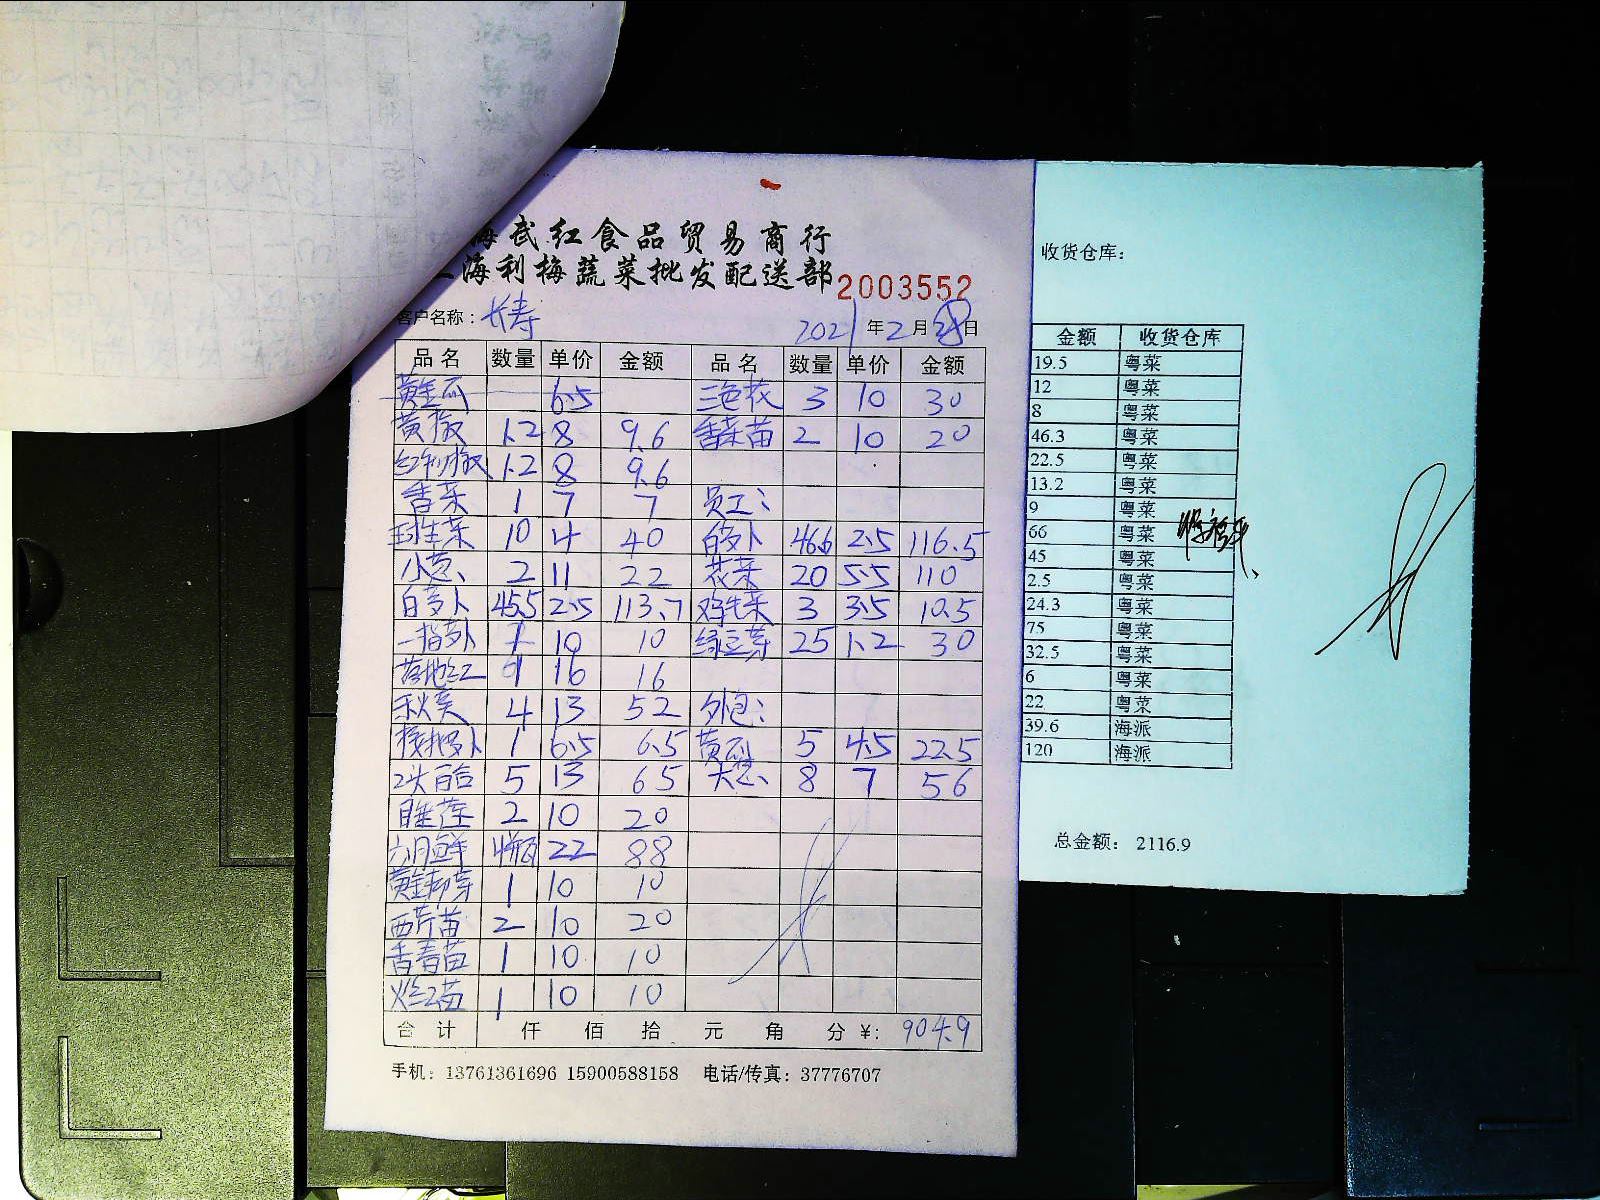 海武红食品贸易商行
海利梅蔬菜批发配送部 2003552
客户名称：长寿 2021年2月28日
品名 数量 单价 金额 品名 数量 单价 金额
黄金瓜 6.5 三色花 3 10 30
黄椒 1.2 8 9.6 香菜苗 2 10 20
红利椒 1.2 8 9.6
香菜 1 7 7 员工：
球生菜 10 4 40 白萝卜 46.6 2.5 116.5
小葱 2 11 22 花菜 20 5.5 110
白萝卜 45.5 2.5 113.7 鸡毛菜 3 3.5 10.5
一指萝卜 1 10 10 绿豆芽 25 1.2 30
落地红 1 16 16
秋葵 4 13 52 外包：
樱桃萝卜 1 6.5 6.5 黄瓜 5 4.5 22.5
2头百合 5 13 65 大葱 8 7 56
睡莲 2 10 20
六月鲜 4瓶 22 88
黄金柳芽 1 10 10
西芹苗 2 10 20
香春苗 1 10 10
火红苗 1 10 10
合计 仟 佰 拾 元 角 分 ¥: 904.9
手机：13761361696 15900588158 电话/传真：37776707
收货仓库：
金额 收货仓库
19.5 粤菜
12 粤菜
8 粤菜
46.3 粤菜
22.5 粤菜
13.2 粤菜
9 粤菜
66 粤菜
45 粤菜
2.5 粤菜
24.3 粤菜
75 粤菜
32.5 粤菜
6 粤菜
22 粤菜
39.6 海派
120 海派
总金额： 2116.9